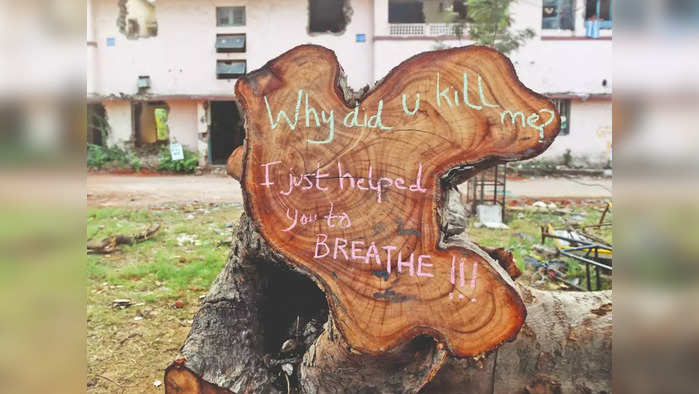 Why did u kill me?
I just helped
you to
BREATHE !!!